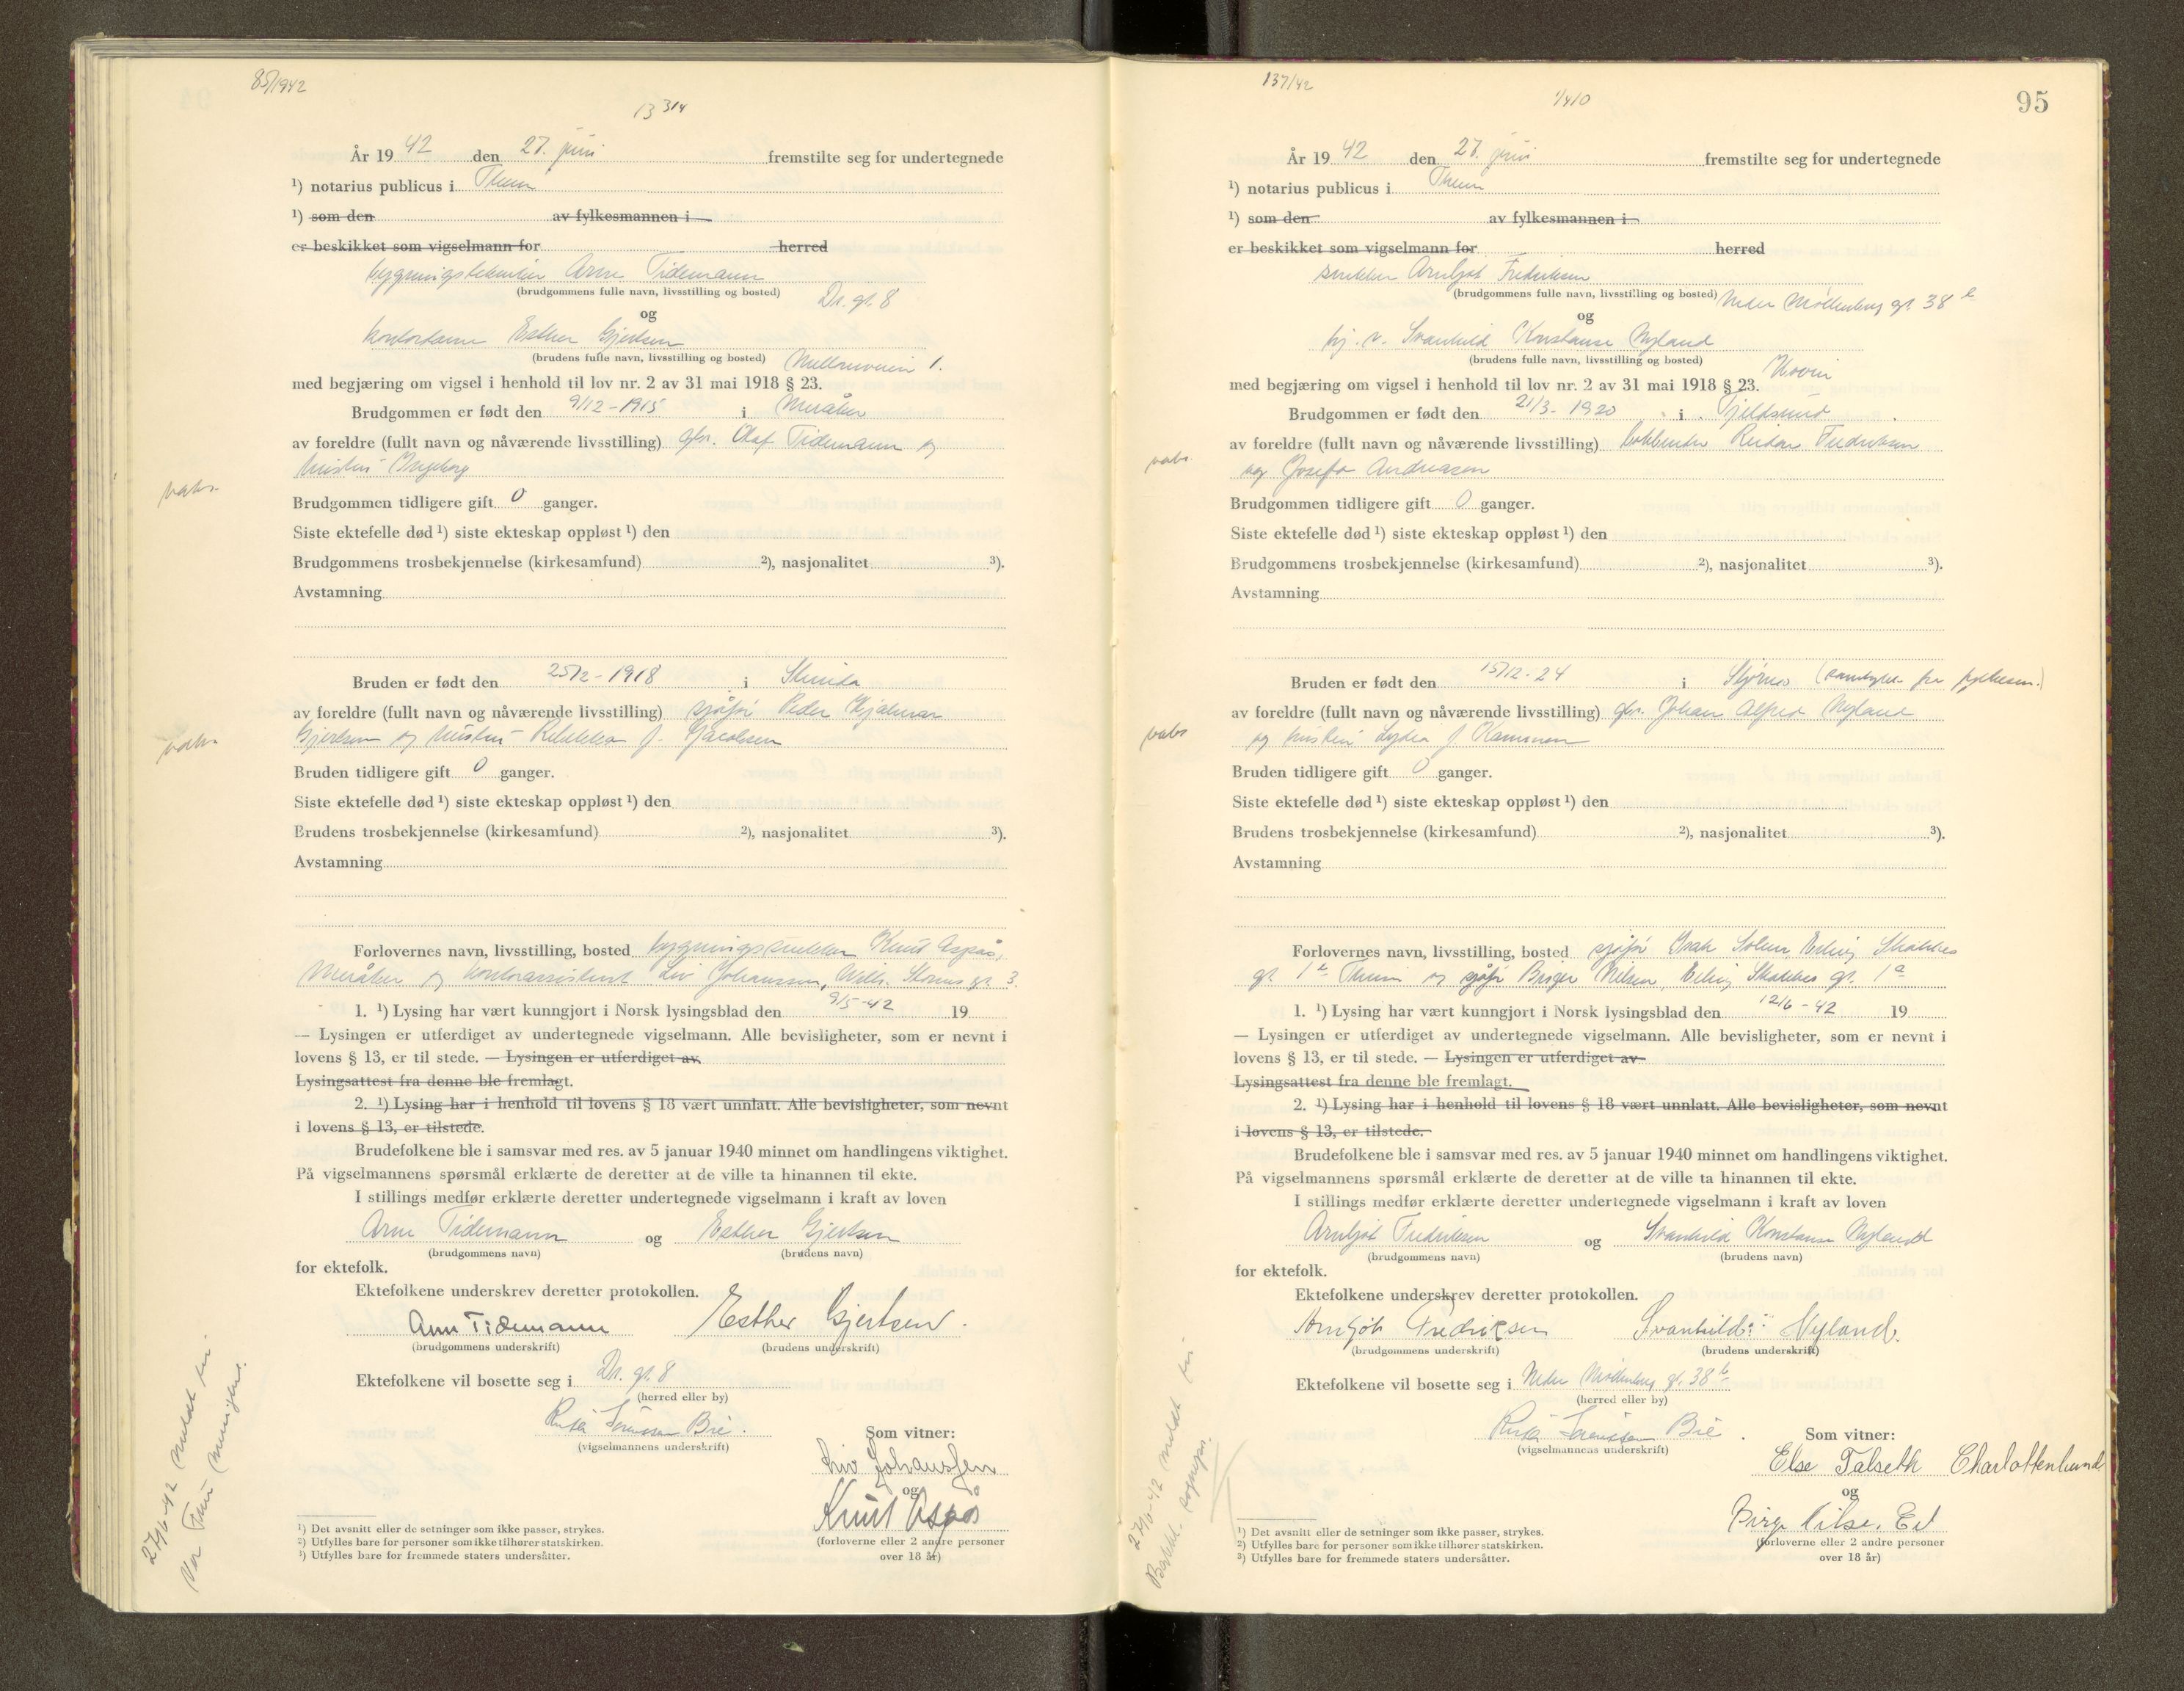 85/1942
13314
År 19 42 den 27. juni fremstilte seg for undertegnede
¹) notarius publicus i Thein
¹) som den av fylkesmannen i
er beskikket som vigselmann for herred
bygningstekniker Arne Tidemann
(brudgommens fulle navn, livsstilling og bosted) Dr. gt. 8
og
kontordame Esther Gjertsen
(brudens fulle navn, livsstilling og bosted) Mellomveien 1.
med begjæring om vigsel i henhold til lov nr. 2 av 31 mai 1918 § 23.
Brudgommen er født den 9/12 - 1915 i Meråker
av foreldre (fullt navn og nåværende livsstilling) gbr. Olaf Tidemann og
hustru Ingeborg
vaks.
Brudgommen tidligere gift 0 ganger.
Siste ektefelle død ¹) siste ekteskap oppløst ¹) den
Brudgommens trosbekjennelse (kirkesamfund) ²), nasjonalitet ³).
Avstamning
Bruden er født den 25/2 - 1918 i Strinda
av foreldre (fullt navn og nåværende livsstilling) sjåfør Peder Hjalmar
Gjertsen og hustru Rebekka f. Jacobsen
vaks.
Bruden tidligere gift 0 ganger.
Siste ektefelle død ¹) siste ekteskap oppløst ¹) den
Brudens trosbekjennelse (kirkesamfund) ²), nasjonalitet ³).
Avstamning
Forlovernes navn, livsstilling, bosted bygningssnekker Knut Aspås,
Meråker og kontorassistent Liv Johanssen, Wilh. Storms gt. 3.
1. ¹) Lysing har vært kunngjort i Norsk lysingsblad den 9/5-42 19
— Lysingen er utferdiget av undertegnede vigselmann. Alle bevisligheter, som er nevnt i
lovens § 13, er til stede. — Lysingen er utferdiget av
Lysingsattest fra denne ble fremlagt.
2. ¹) Lysing har i henhold til lovens § 18 vært unnlatt. Alle bevisligheter, som nevnt
i lovens § 13, er tilstede.
Brudefolkene ble i samsvar med res. av 5 januar 1940 minnet om handlingens viktighet.
På vigselmannens spørsmål erklærte de deretter at de ville ta hinannen til ekte.
I stillings medfør erklærte deretter undertegnede vigselmann i kraft av loven
Arne Tidemann og Esther Gjertsen
(brudgommens navn) (brudens navn)
for ektefolk.
Ektefolkene underskrev deretter protokollen.
Arne Tidemann Esther Gjertsen.
(brudgommens underskrift) (brudens underskrift)
Ektefolkene vil bosette seg i Dr. gt. 8
(herred eller by)
Sørenssen Bie.
(vigselmannens underskrift)
Som vitner:
Liv Johanssen
og
Knut Aspås
(forloverne eller 2 andre personer
over 18 år)
¹) Det avsnitt eller de setninger som ikke passer, strykes.
²) Utfylles bare for personer som ikke tilhører statskirken.
³) Utfylles bare for fremmede staters undersåtter.
27/6-42 meldt til
137/42
1/410
95
År 19 42 den 27. juni fremstilte seg for undertegnede
¹) notarius publicus i Thein
¹) som den av fylkesmannen i
er beskikket som vigselmann for herred
snekker Arnljot Fredriksen
(brudgommens fulle navn, livsstilling og bosted) Nedre Møllenberg gt 38 b
og
hj. v. Svanhild Konstanse Nyland
(brudens fulle navn, livsstilling og bosted)
med begjæring om vigsel i henhold til lov nr. 2 av 31 mai 1918 § 23. Hovin
Brudgommen er født den 21/3- 1920 i Tjeldsund
av foreldre (fullt navn og nåværende livsstilling) Reidar Fredriksen
og Josefa Andreasen
vaks.
Brudgommen tidligere gift 0 ganger.
Siste ektefelle død ¹) siste ekteskap oppløst ¹) den
Brudgommens trosbekjennelse (kirkesamfund) ²), nasjonalitet ³).
Avstamning
Bruden er født den 15/12-24 i Stjørna (samtykke fra fylkesm.)
av foreldre (fullt navn og nåværende livsstilling) gbr. Johan Alfred Nyland
og hustru Lydia f
vaks
Bruden tidligere gift 0 ganger.
Siste ektefelle død ¹) siste ekteskap oppløst ¹) den
Brudens trosbekjennelse (kirkesamfund) ²), nasjonalitet ³).
Avstamning
Forlovernes navn, livsstilling, bosted sjåfør Isak Solem Erling Skakkes
gt. 1 a og sjåfør Birger Nilsen, Erling Skakkes gt. 1 a
1. ¹) Lysing har vært kunngjort i Norsk lysingsblad den 12/6-42 19
— Lysingen er utferdiget av undertegnede vigselmann. Alle bevisligheter, som er nevnt i
lovens § 13, er til stede. — Lysingen er utferdiget av
Lysingsattest fra denne ble fremlagt.
2. ¹) Lysing har i henhold til lovens § 18 vært unnlatt. Alle bevisligheter, som nevnt
i lovens § 13, er tilstede.
Brudefolkene ble i samsvar med res. av 5 januar 1940 minnet om handlingens viktighet.
På vigselmannens spørsmål erklærte de deretter at de ville ta hinannen til ekte.
I stillings medfør erklærte deretter undertegnede vigselmann i kraft av loven
Arnljot Fredriksen og Svanhild Konstanse Nyland
(brudgommens navn) (brudens navn)
for ektefolk.
Ektefolkene underskrev deretter protokollen.
Arnljot Fredriksen Svanhild Nyland.
(brudgommens underskrift) (brudens underskrift)
Ektefolkene vil bosette seg i Nedre Møllenberg gt. 38 b
(herred eller by)
Sørenssen Bie.
(vigselmannens underskrift)
Som vitner:
Else Talseth Charlottenlund
og
Birger Nilsen
(forloverne eller 2 andre personer
over 18 år)
¹) Det avsnitt eller de setninger som ikke passer, strykes.
²) Utfylles bare for personer som ikke tilhører statskirken.
³) Utfylles bare for fremmede staters undersåtter.
27/6-42 meldt til